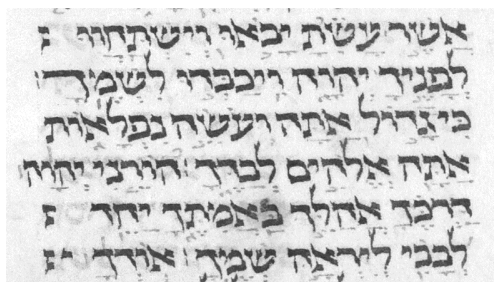 אשר עשת יבאו וישתחוו
לפניך יהוה ויכבדו לשמך׃
כי גדול אתה ועשה נפלאות
אתה אלהים לבדך׃ הורני יהוה
דרכך אהלך באמתך יחד
לבבי ליראה שמך׃ אודך